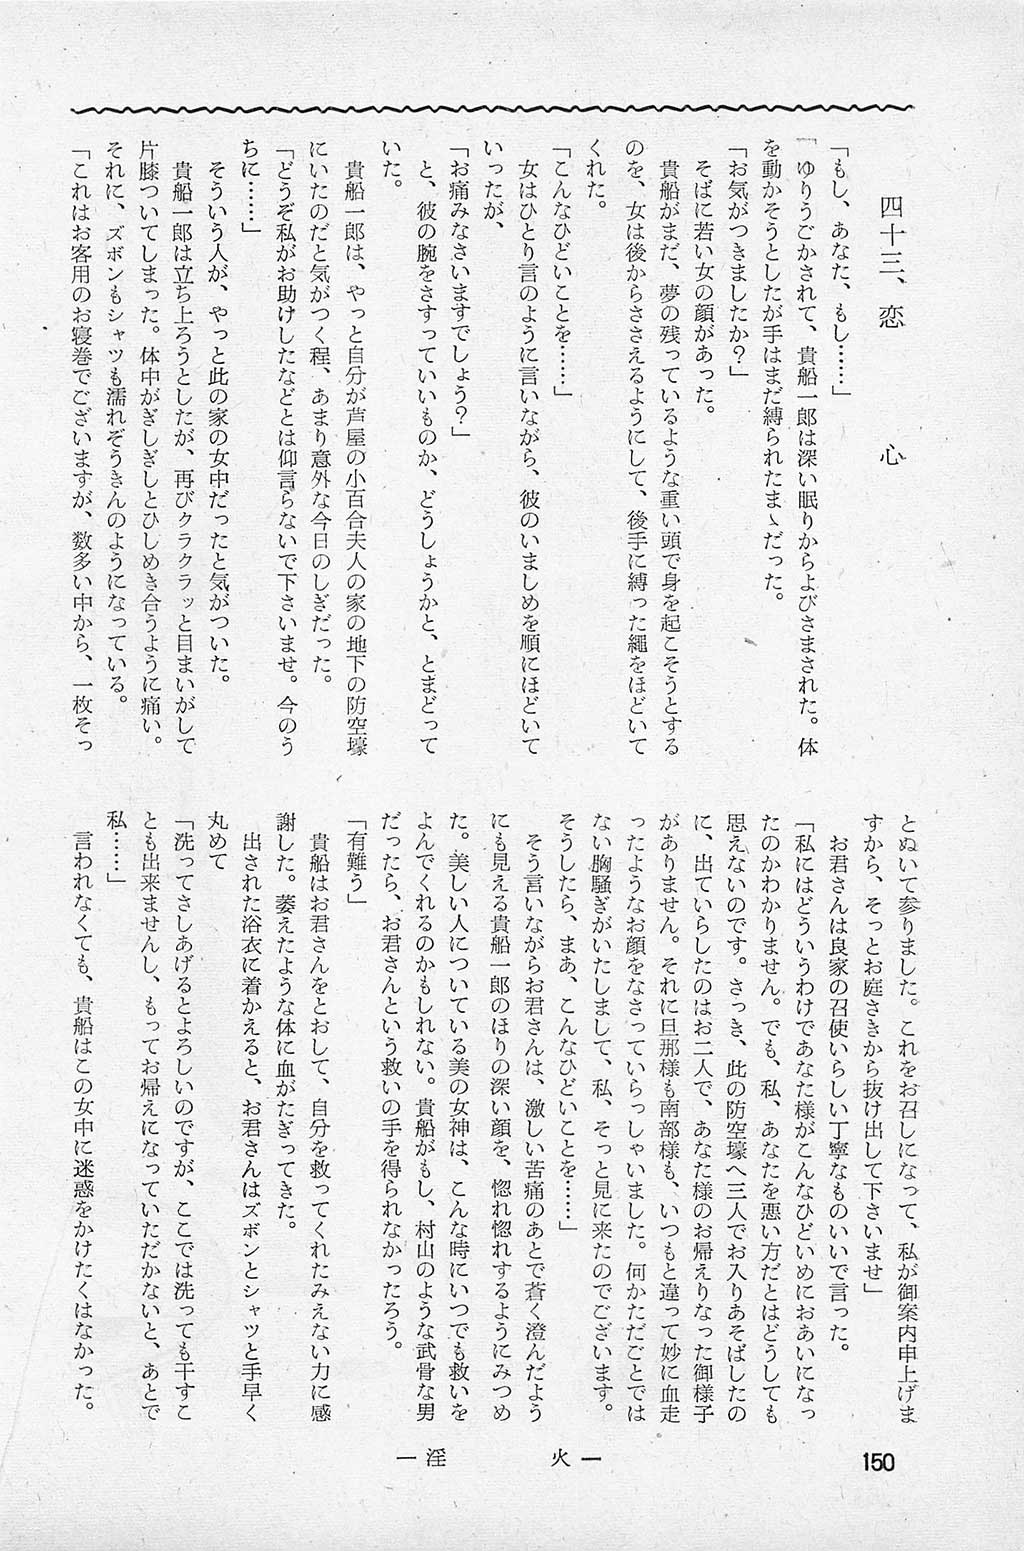 四十三、恋心
「もし、あなた、もし……」
「ゆりうごかされて、貴船一郎は深い眠りからよびさまされた。体
を動かそうとしたが手はまだ縛られたまゝだった。
「お気がつきましたか？」
そばに若い女の顔があった。
貴船がまだ、夢の残っているような重い頭で身を起こそうとする
のを、女は後からささえるようにして、後手に縛った縄をほどいて
くれた。
「こんなひどいことを……」
女はひとり言のように言いながら、彼のいましめを順にほどいて
いったが、
「お痛みなさいますでしょう？」
と、彼の腕をさすっていいものか、どうしょうかと、とまどって
いた。
貴船一郎は、やっと自分が芦屋の小百合夫人の家の地下の防空壕
にいたのだと気がつく程、あまり意外な今日のしぎだった。
「どうぞ私がお助けしたなどとは仰言らないで下さいませ。今のう
ちに……」
そういう人が、やっと此の家の女中だったと気がついた。
貴船一郎は立ち上ろうとしたが、再びクラクラッと目まいがして
片膝ついてしまった。体中がぎしぎしとひしめき合うように痛い。
それに、ズボンもシャツも濡れぞうきんのようになっている。
「これはお客用のお寝巻でございますが、数多い中から、一枚そっ
とぬいて参りました。これをお召しになって、私が御案内申上げま
すから、そっとお庭さきから抜け出して下さいませ」
お君さんは良家の召使いらしい丁寧なものいいで言った。
「私にはどういうわけであなた様がこんなひどいめにおあいになっ
たのかわかりません。でも、私、あなたを悪い方だとはどうしても
思えないのです。さっき、此の防空壕へ三人でお入りあそばしたの
に、出ていらしたのはお二人で、あなた様のお帰えりなった御様子
がありません。それに旦那様も南部様も、いつもと違って妙に血走
ったようなお顔をなさっていらっしゃいました。何かただごとでは
ない胸騒ぎがいたしまして、私、そっと見に来たのでございます。
そうしたら、まあ、こんなひどいことを……」
そう言いながらお君さんは、激しい苦痛のあとで蒼く澄んだよう
にも見える貴船一郎のほりの深い顔を、惚れ惚れするようにみつめ
た。美しい人についている美の女神は、こんな時にいつでも救いを
よんでくれるのかもしれない。貴船がもし、村山のような武骨な男
だったら、お君さんという救いの手を得られなかったろう。
「有難う」
貴船はお君さんをとおして、自分を救ってくれたみえない力に感
謝した。萎えたような体に血がたぎってきた。
出された浴衣に着かえると、お君さんはズボンとシャツと手早く
丸めて
「洗ってさしあげるとよろしいのですが、ここでは洗っても干すこ
とも出来ませんし、もってお帰えになっていただかないと、あとで
私……」
言われなくても、貴船はこの女中に迷惑をかけたくはなかった。
―淫火―
150